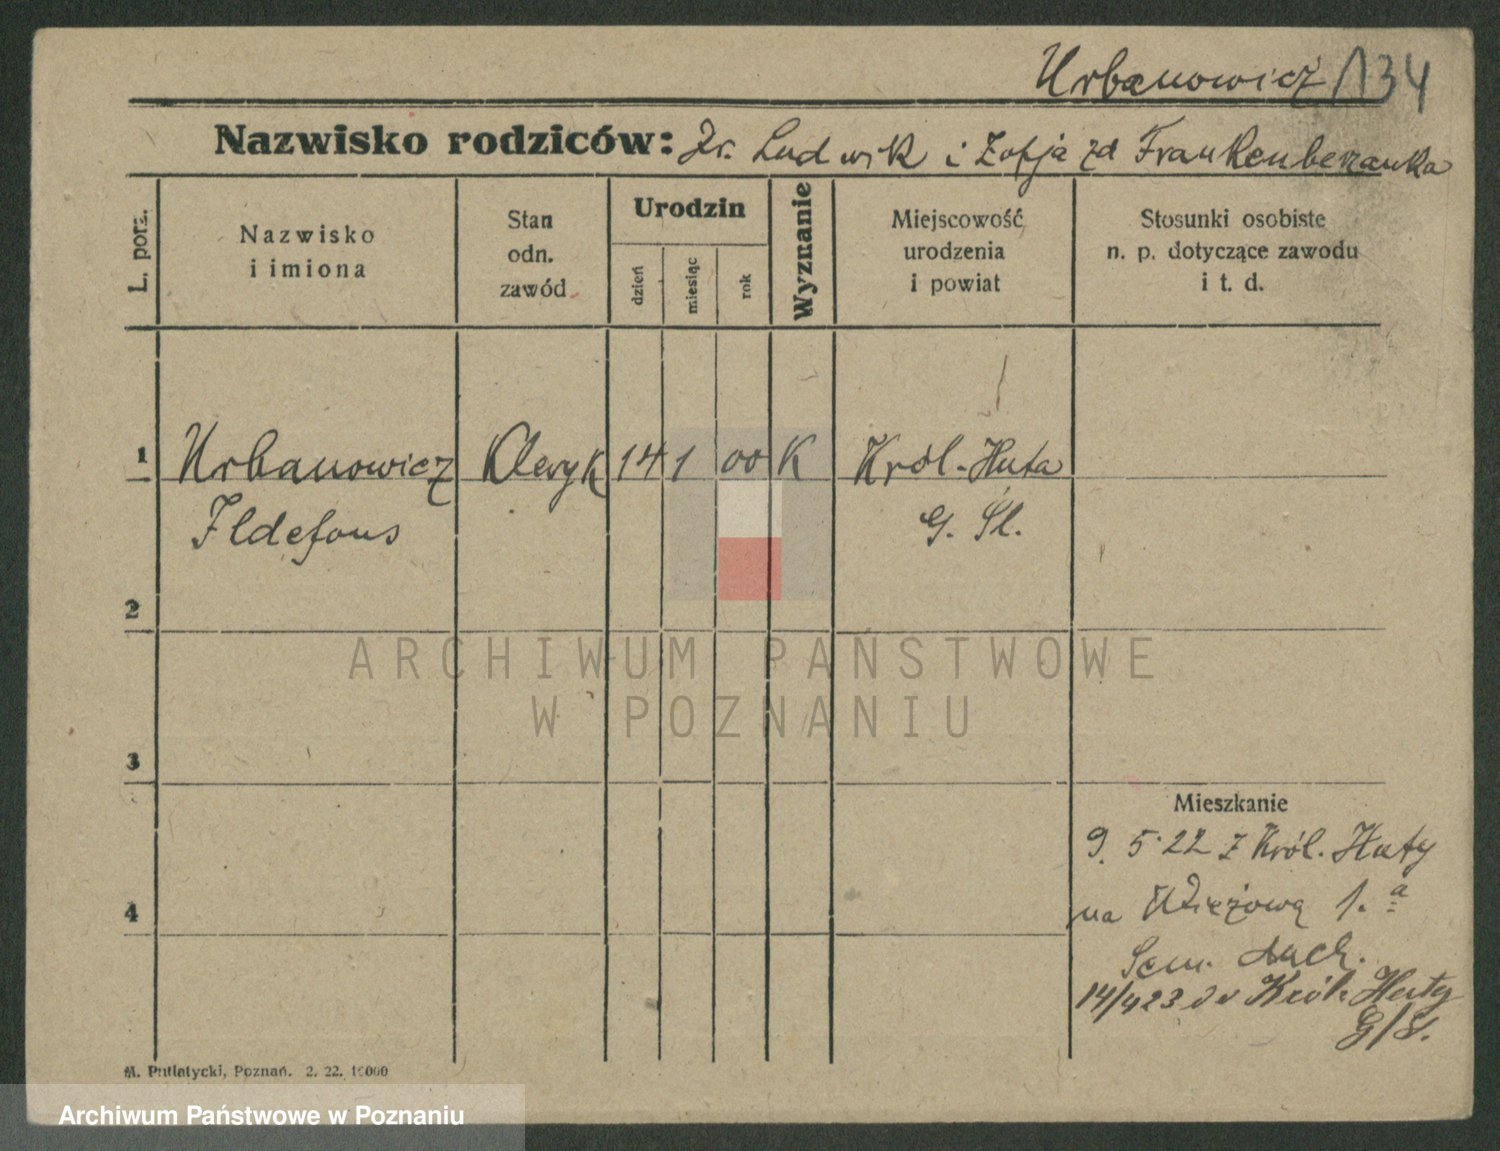 Urbanowicz 134
Nazwisko rodziców: Dr. Ludwik i Zofja zd Frankenberżanka
L. porz.
Nazwisko
i imiona
Stan
odn.
zawód
Urodzin
dzień
miesiąc
rok
Wyznanie
Miejscowość
urodzenia
i powiat
Stosunki osobiste
n. p. dotyczące zawodu
i t. d.
1 Urbanowicz Kleryk 14 1 00 K Król.-Huta
Ildefons G. Śl.
2
3
4
ARCHIWUM PAŃSTWOWE
W POZNANIU
Mieszkanie
9. 5. 22 z Król. Huty
na Wieżową 1. a
Sem. duch.
14/4 23 do Król. Huty
G/S.
M. Putiatycki, Poznań. 2. 22. 10000
Archiwum Państwowe w Poznaniu